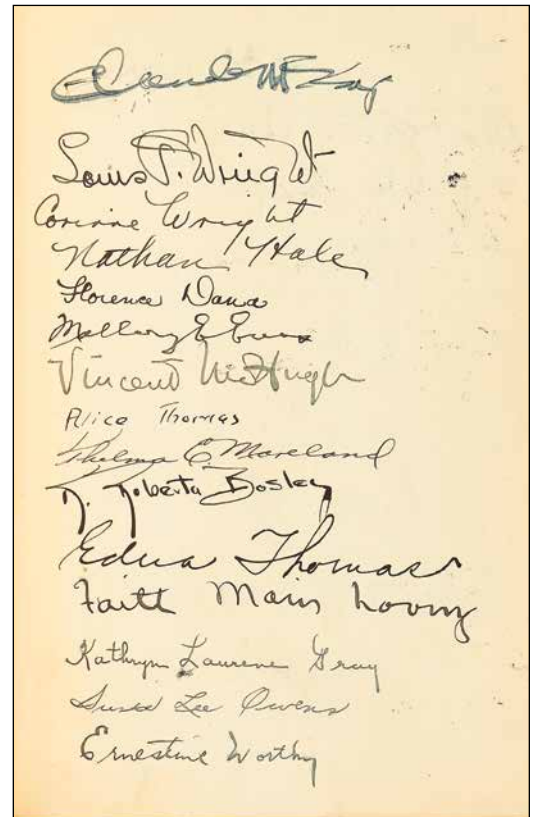 Claude McKay
Louis T. Wright
Corinne Wright
Nathan Hale
Florence Dana
Mallory E Evans
Vincent McHugh
Alice Thomas
Thelma E Moreland
R. Roberta Bosley
Edna Thomas
Faith Loving
Kathryn Laurene Gray
Susie Lee Owens
Ernestine Worthy